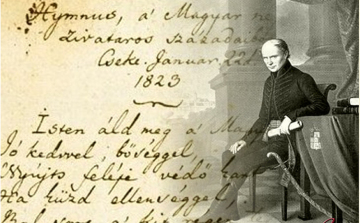 Hymnus, a' Magyar ne
Zivataros századaiból
Cseke. Januar. 22d.
1823
Isten áld meg a' Magy
Jó kedvvel, bőséggel,
Nyújts feléje védő kart
Ha küzd ellenséggel,